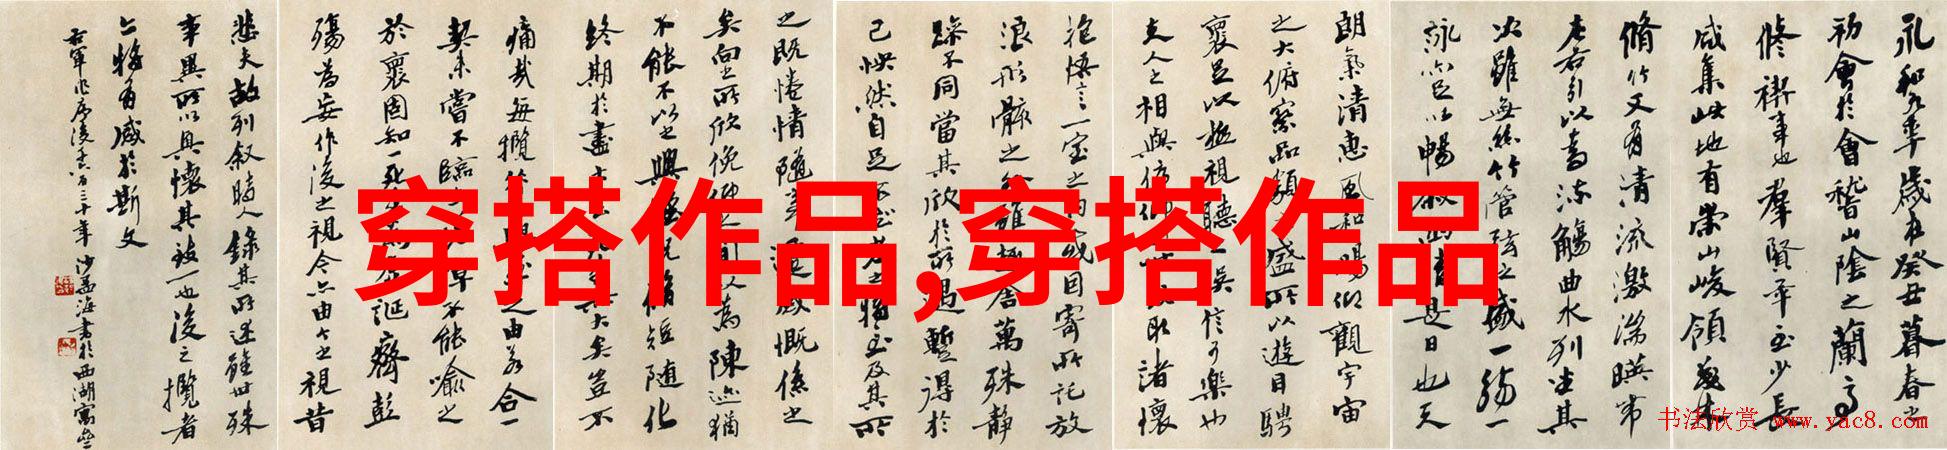 永和九年歲在癸丑暮春之
初會於會稽山陰之蘭亭
修禊事也羣賢畢至少長
咸集此地有崇山峻領茂林
脩竹又有清流激湍暎帶
左右引以為流觴曲水列坐其
次雖無絲竹管弦之盛一觴一
詠亦足以暢敘幽情是日也天
朗氣清惠風和暢仰觀宇宙
之大俯察品類之盛所以遊目騁
懷足以極視聽之娛信可樂也
夫人之相與俯仰一世或取諸懷
抱悟言一室之內或因寄所託放
浪形骸之外雖趣舍萬殊靜
躁不同當其欣於所遇暫得於
己怏然自足不知老之將至及其所
之既惓情隨事遷感慨係之
矣向之所欣俛仰之間以為陳迹猶
不能不以之興懷況脩短隨化
終期於盡古人云死生亦大矣豈不
痛哉每攬昔人興感之由若合一
契未嘗不臨文嗟悼不能喻之
於懷固知一死生為虛誕齊彭
殤為妄作後之視今亦由今之視昔
悲夫故列敘時人錄其所述雖世殊
事異所以興懷其致一也後之攬者
亦將有感於斯文
右軍作序後千六百三十年 沙孟海書於西湖寓舍
穿搭作品,穿搭作品
书法欣赏 www.yac8.com